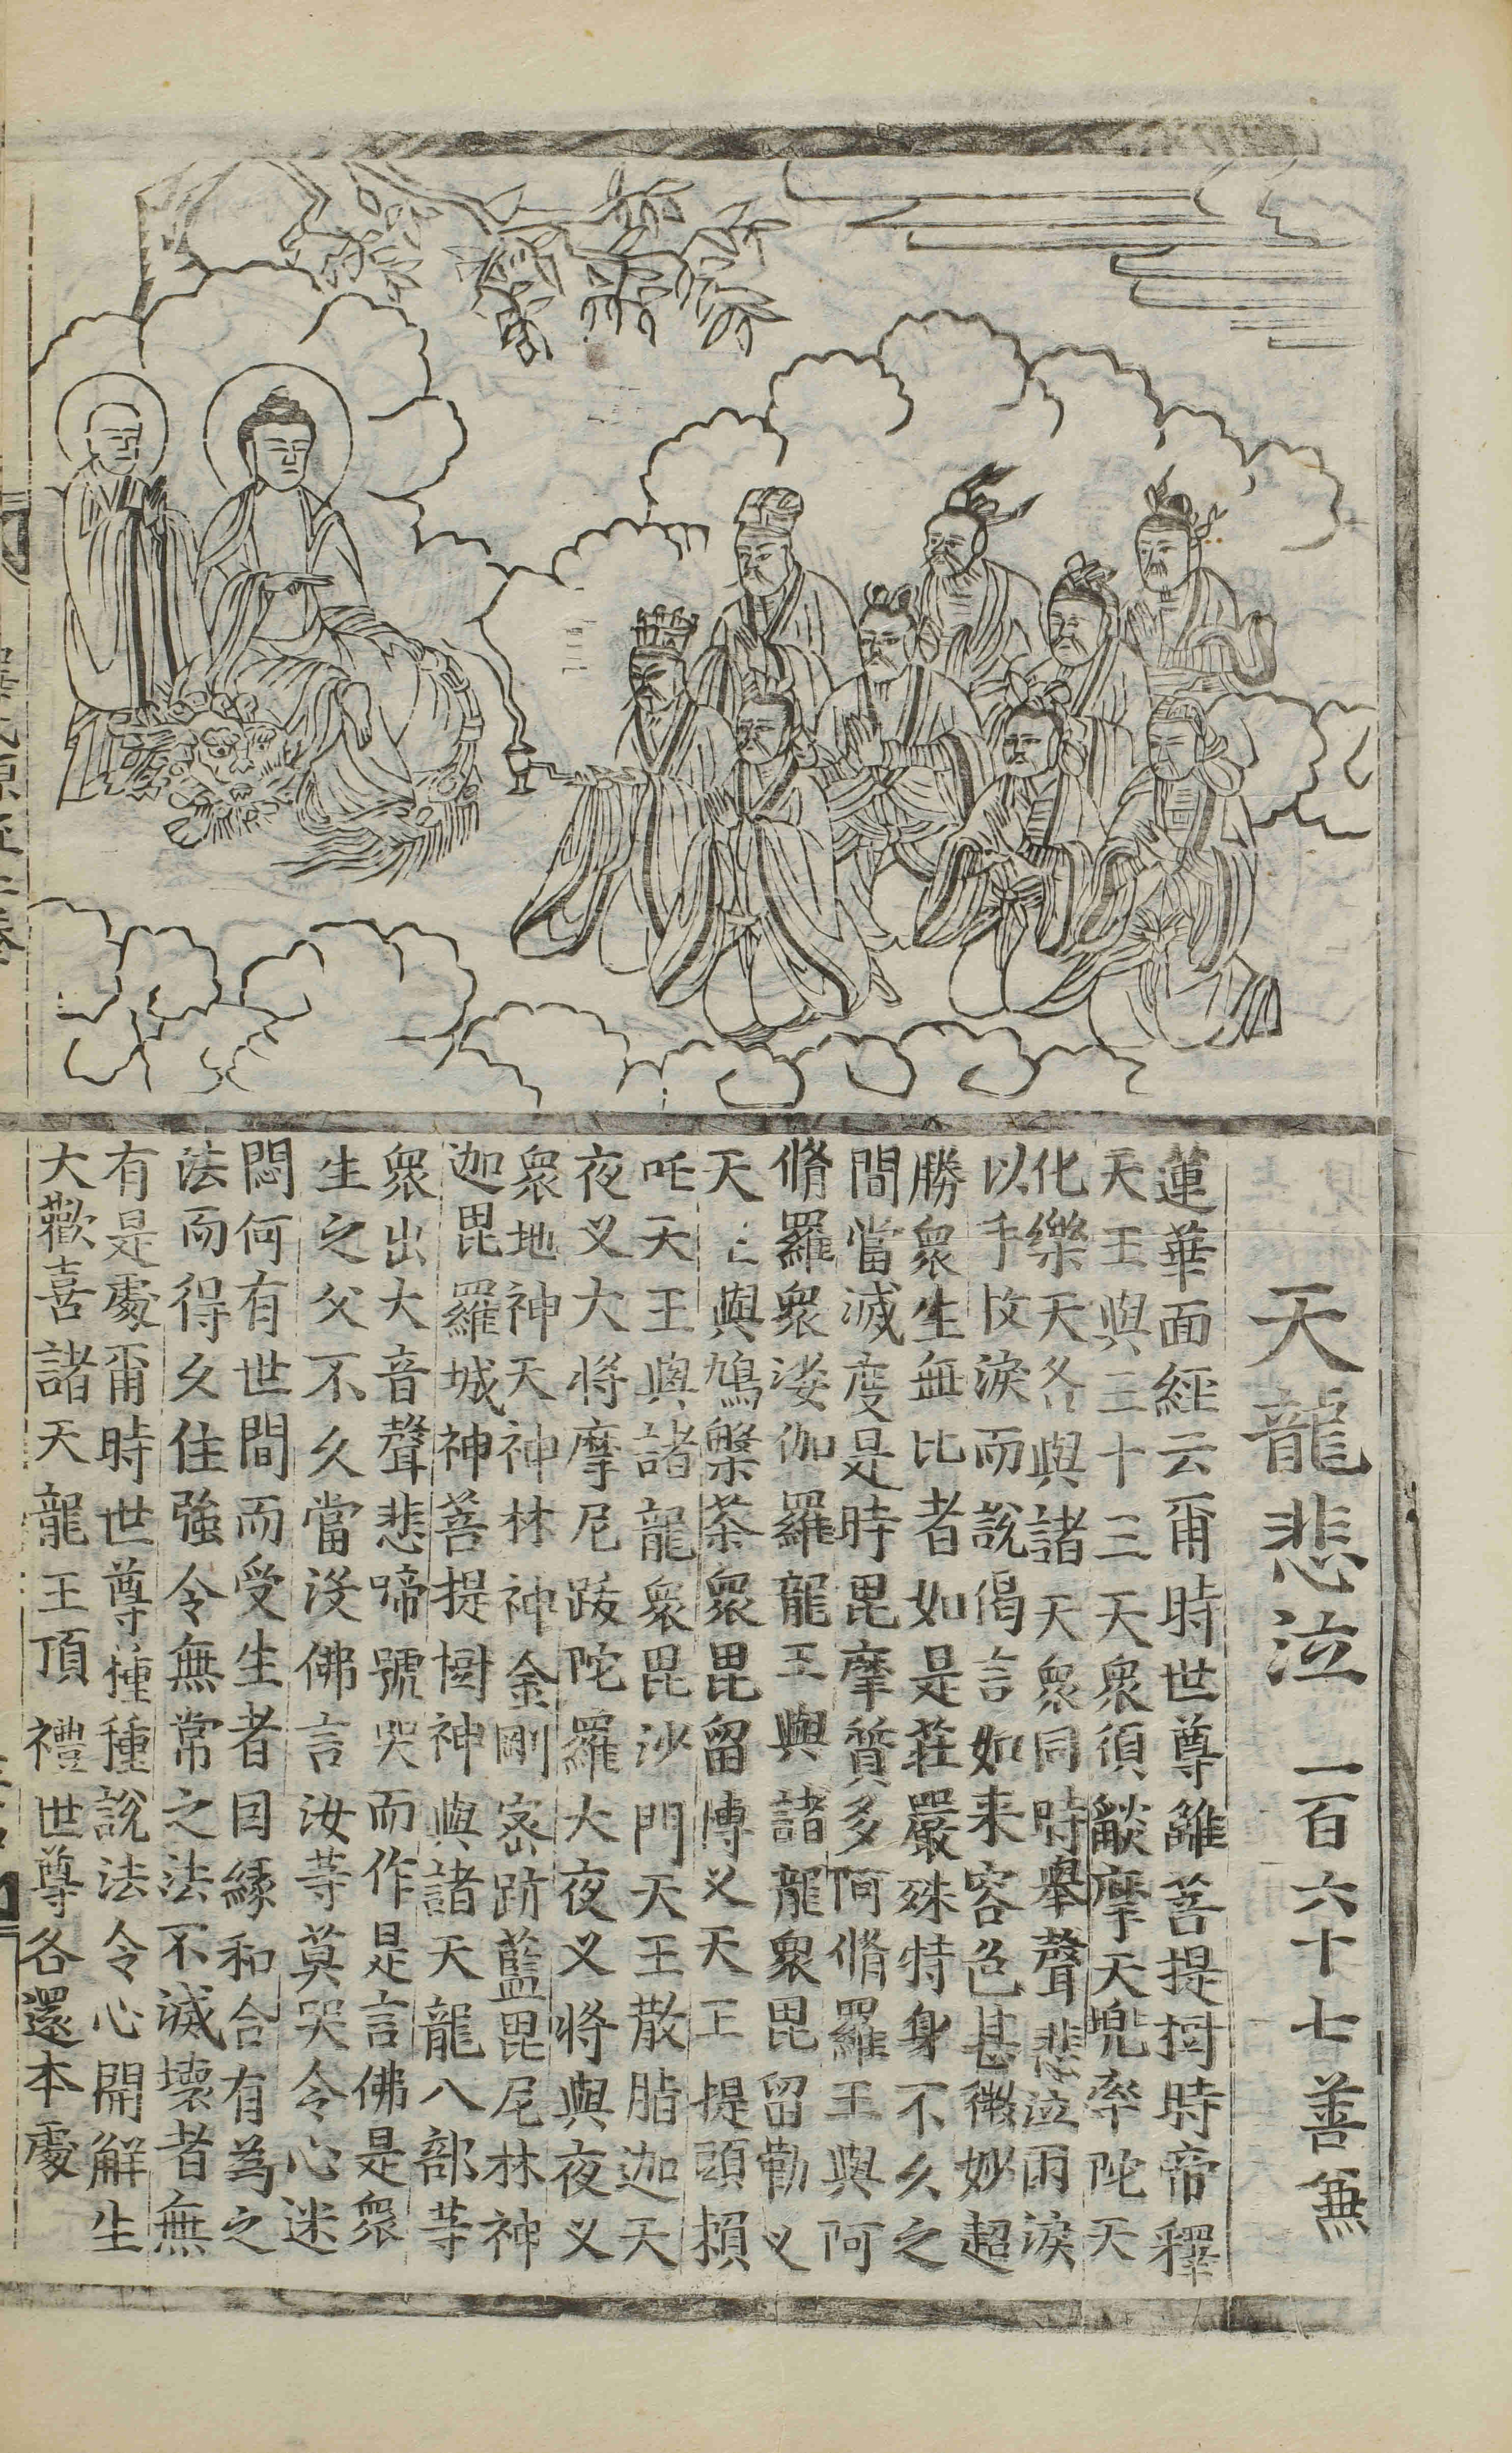 天龍悲泣 一百六十七 善無
蓮華面經云爾時世尊離菩提樹時帝釋
天王與三十三天衆須燄摩天兜率陀天
化樂天各與諸天衆同時舉聲悲泣雨淚
以手抆淚而說偈言如来容色甚微妙超
勝衆生無比者如是莊嚴殊特身不久之
間當滅度是時毘摩質多阿脩羅王與阿
脩羅衆娑伽羅龍王與諸龍衆毘留勒叉
天王與鳩槃茶衆毘留博叉天王提頭賴
吒天王與諸龍衆毘沙門天王散脂迦天
夜叉大將摩尼跋陀羅大夜叉將與夜叉
衆地神天神林神金剛密跡藍毘尼林神
迦毘羅城神菩提樹神與諸天龍八部等
衆出大音聲悲啼號哭而作是言佛是衆
生之父不久當沒佛言汝等莫哭令心迷
悶何有世間而受生者因緣和合有為之
法而得久住強令無常之法不滅壞者無
有是處爾時世尊種種說法令心開解生
大歡喜諸天龍王頂禮世尊各還本處